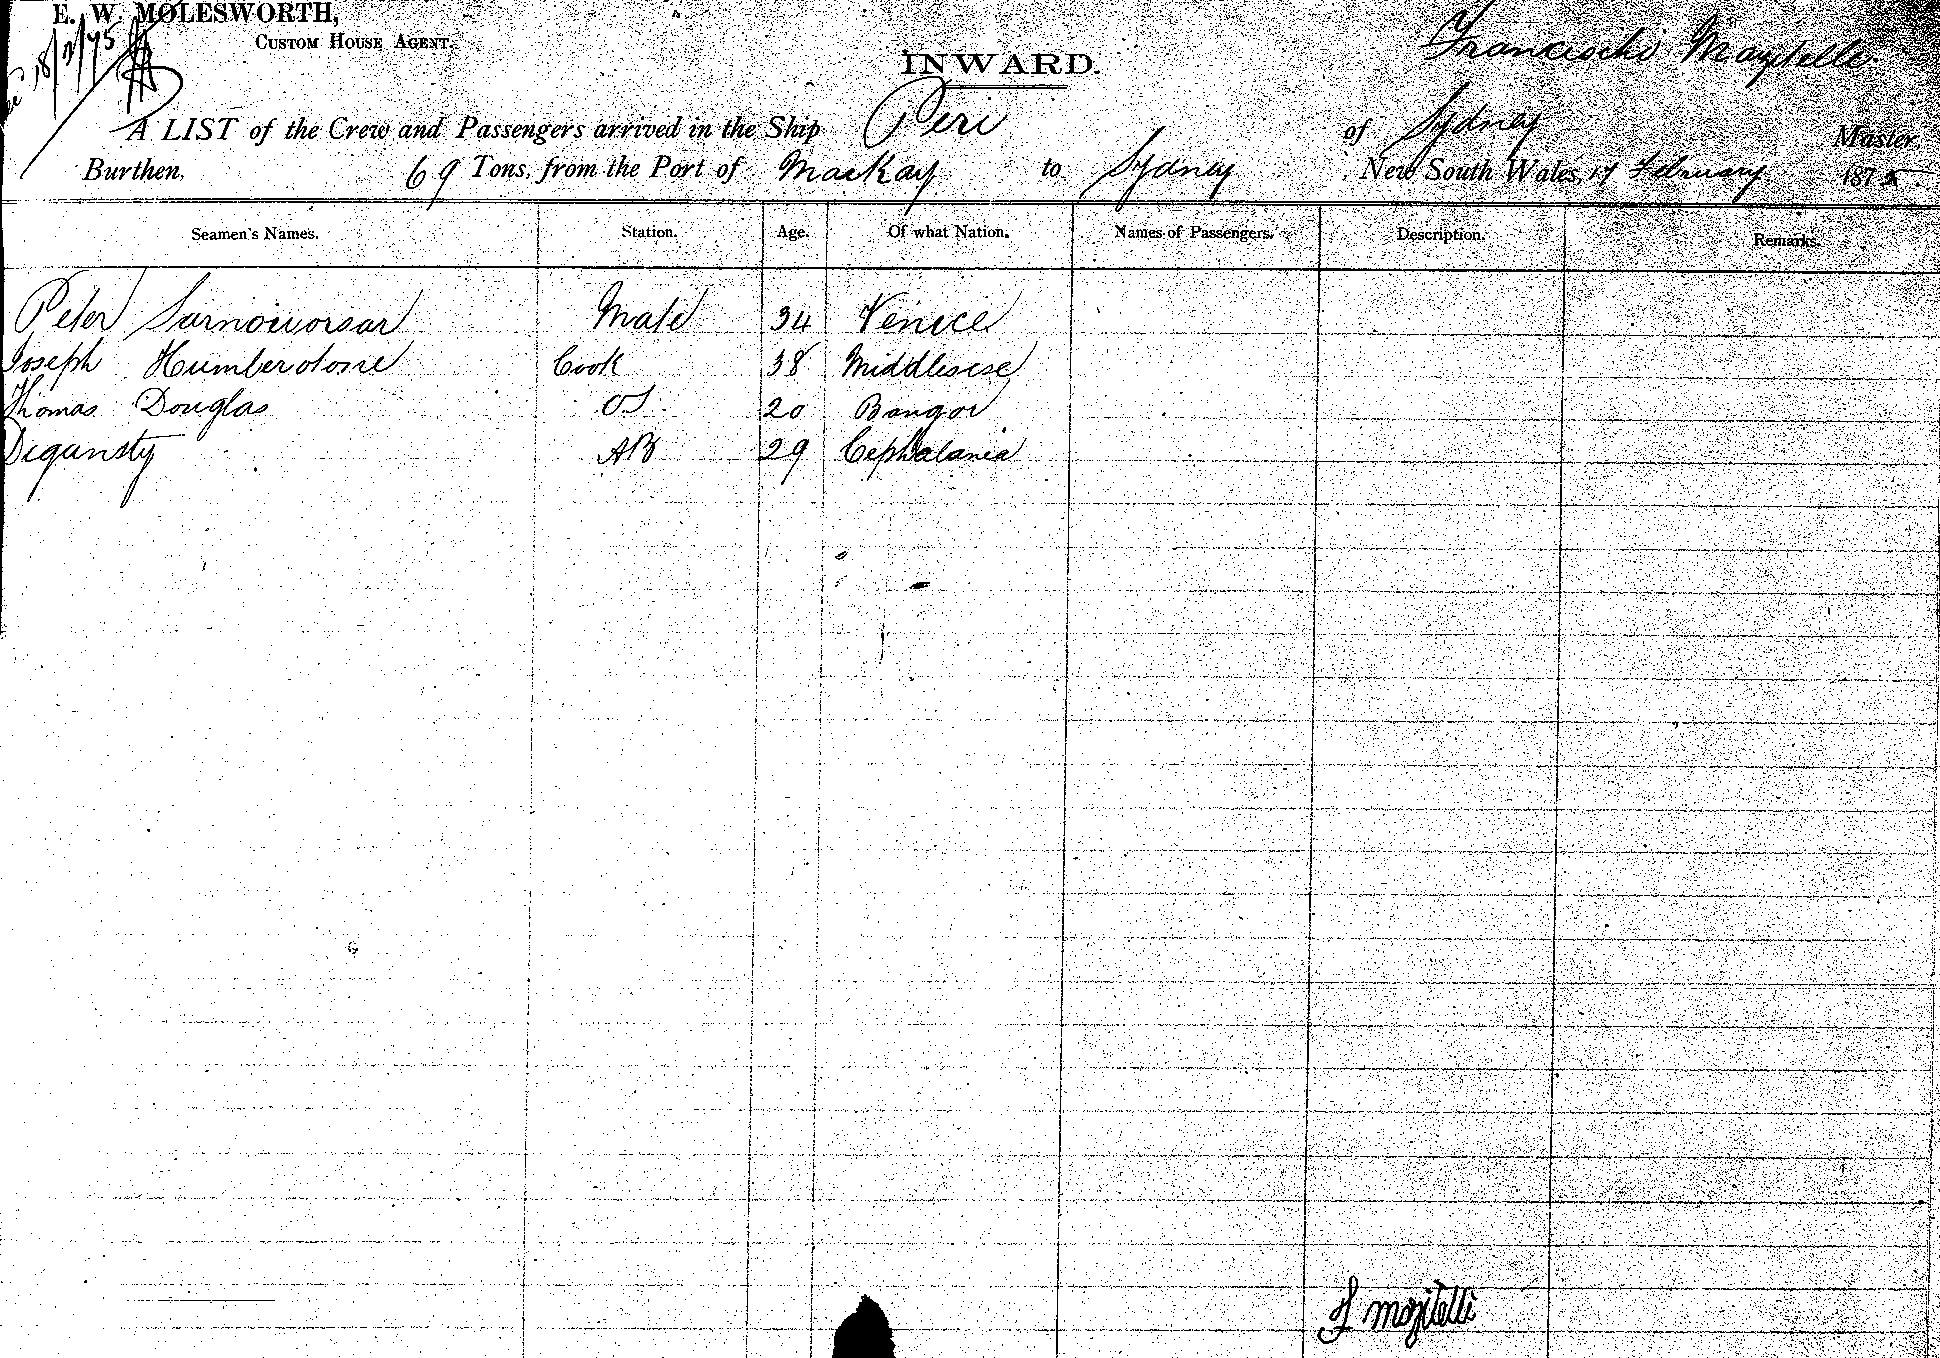 E. W. MOLESWORTH,
CUSTOM HOUSE AGENT.
18/2/75
INWARD.
Francischi Mazitelli
A LIST of the Crew and Passengers arrived in the Ship Peri of Sydney Master
Burthen, 69 Tons, from the Port of Mackay to Sydney New South Wales, 17 February 1875
Seamen's Names. Station. Age. Of what Nation. Names of Passengers. Description. Remarks.
Peter Mate 34 Venice
Joseph Humberstone Cook 38 Middlesese
Thomas Douglas OS 20 Bangor
Digansty AB 29 Cephalania
F Mazitelli